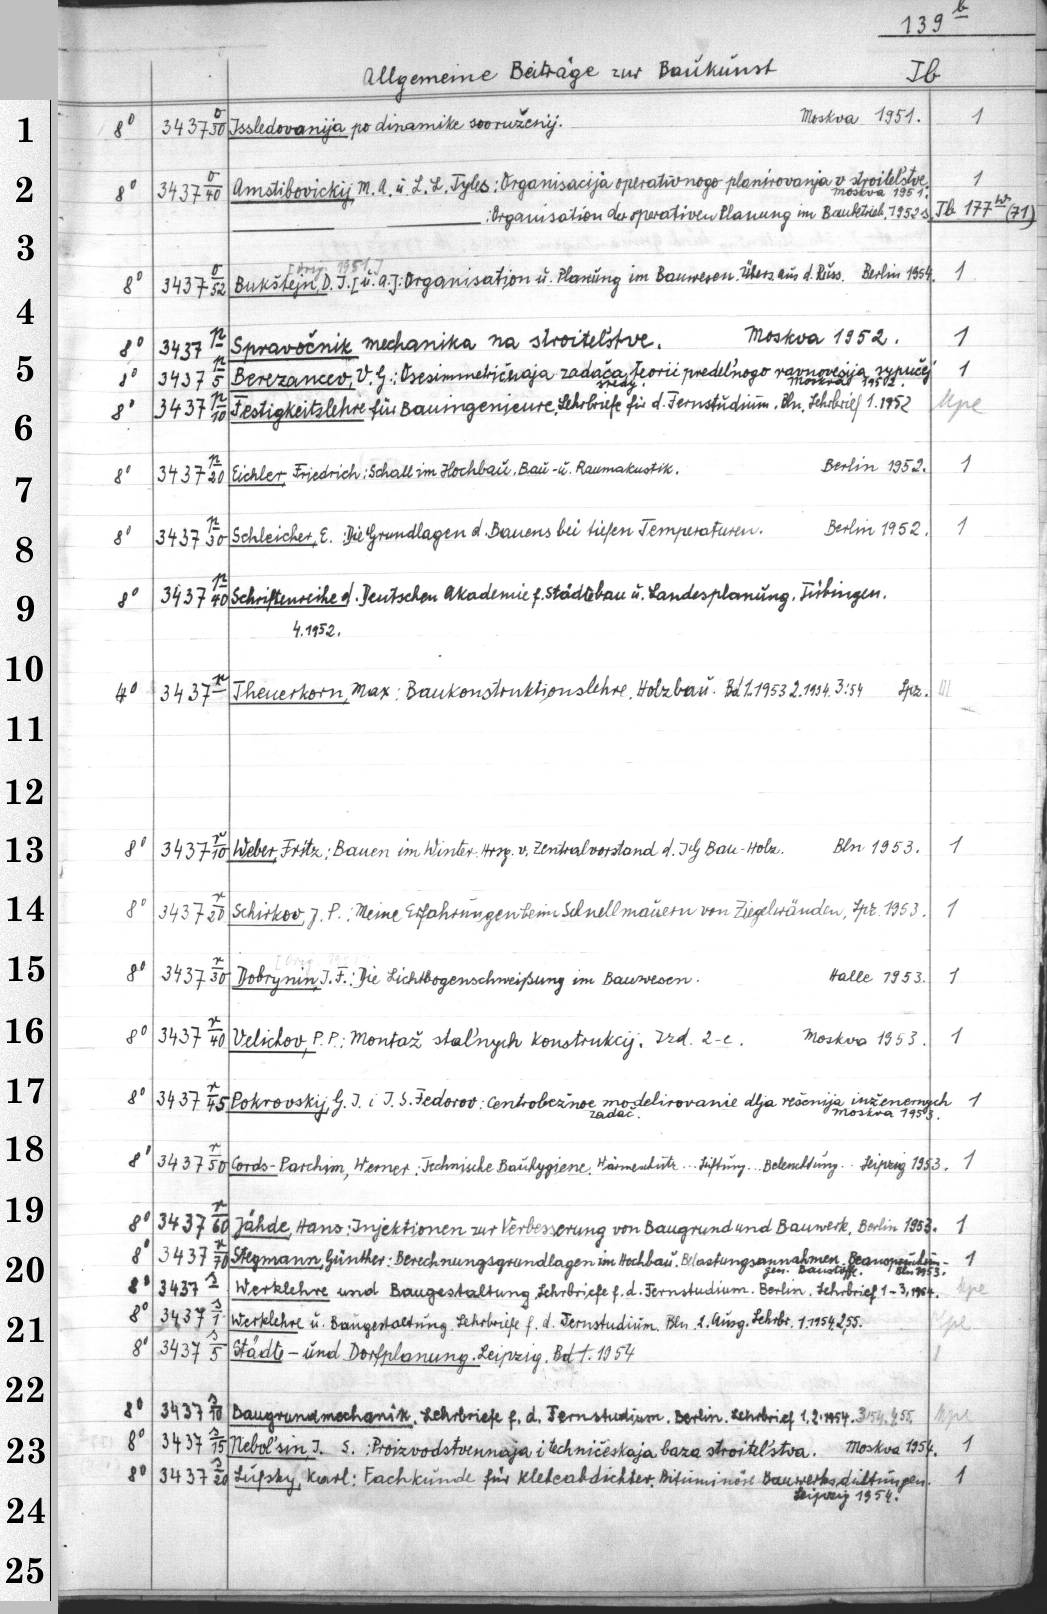 139 b
Allgemeine Beiträge zur Baukunst Ib
1 8° 3437 o/30 Issledovanija po dinamike sooruženij. Moskva 1951. 1
2 8° 3437 o/40 Amstibovickij, M. A. u. L. L. Tyles: Organisacija operativnogo planirovanja v stroitel'stve. 1
Moskva 1951.
: Organisation der operativen Planung im Baubetrieb. 1952 s. Ib 177 w (71)
3
[Orig. 1951]
8° 3437 o/52 Bukštejn, D. I. [u. a.]: Organisation u. Planung im Bauwesen. Übers. aus d. Russ. Berlin 1954. 1
4
8° 3437 p Spravočnik mechanika na stroitel'stve. Moskva 1952. 1
5 8° 3437 p/5 Berezancev, V. G.: Osesimmetričnaja zadača teorii predel'nogo ravnovesija sypučej 1
sredy. Moskva 1952.
8° 3437 p/10 Festigkeitslehre für Bauingenieure. Lehrbriefe für d. Fernstudium. Bln. Lehrbrief 1. 1952 Mpe
6
8° 3437 p/20 Eichler, Friedrich: Schall im Hochbau. Bau- u. Raumakustik. Berlin 1952. 1
7
8° 3437 p/30 Schleicher, E.: Die Grundlagen d. Bauens bei tiefen Temperaturen. Berlin 1952. 1
8
8° 3437 p/40 Schriftenreihe d. Deutschen Akademie f. Städtebau u. Landesplanung. Tübingen.
9
4. 1952.
10
4° 3437 r Theuerkorn, Max: Baukonstruktionslehre. Holzbau. Bd 1. 1953 2. 1954. 3: 54 Lpz. III
11
12
13 8° 3437 r/10 Weber, Fritz: Bauen im Winter. Hrsg. v. Zentralvorstand d. IG Bau-Holz. Bln 1953. 1
14 8° 3437 r/20 Schirkov, J. P.: Meine Erfahrungen beim Schnellmauern von Ziegelwänden. Lpz. 1953. 1
15 8° 3437 r/30 Dobrynin, I. F.: Die Lichtbogenschweißung im Bauwesen. Halle 1953. 1
16 8° 3437 r/40 Velichov, P. P.: Montaž stal'nych konstrukcij. Izd. 2-e. Moskva 1953. 1
17 8° 3437 r/45 Pokrovskij, G. I. i I. S. Fedorov: Centrobežnoe modelirovanie dlja rešenija inženernych 1
zadač. Moskva 1953.
18 8° 3437 r/50 Cords-Parchim, Werner: Technische Bauhygiene. Wärmeschutz... Lüftung... Beleuchtung... Leipzig 1953. 1
19 8° 3437 r/60 Jähde, Hans: Injektionen zur Verbesserung von Baugrund und Bauwerk. Berlin 1953. 1
8° 3437 r/70 Stegmann, Günther: Berechnungsgrundlagen im Hochbau. Belastungsannahmen. Beanspruchun- 1
20 gen. Baustoffe. Bln 1953.
8° 3437 s Werklehre und Baugestaltung. Lehrbriefe f. d. Fernstudium. Berlin. Lehrbrief 1-3, 1954. Mpe
21 8° 3437 s/1 Werklehre u. Baugestaltung. Lehrbriefe f. d. Fernstudium. Bln. 2. Ausg. Lehrbr. 1. 1954. 2,55. Mpe
8° 3437 s/5 Städte- und Dorfplanung. Leipzig. Bd 1. 1954 1
22
8° 3437 s/10 Baugrundmechanik. Lehrbriefe f. d. Fernstudium. Berlin. Lehrbrief 1, 2. 1954. 3:54. 4,55. Mpe
23 8° 3437 s/15 Nebol'sin, I. S.: Proizvodstvennaja i techničeskaja baza stroitel'stva. Moskva 1954. 1
8° 3437 s/20 Lufsky, Karl: Fachkunde für Klebeabdichter. Bituminöse Bauwerksdichtungen. 1
24 Leipzig 1954.
25